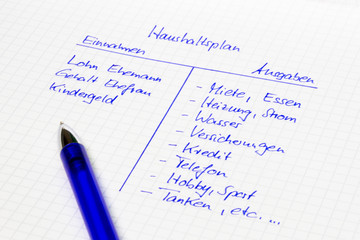 Haushaltsplan
Einnahmen
Lohn Ehemann
Gehalt Ehefrau
Kindergeld
Ausgaben
- Miete, Essen
- Heizung, Strom
- Wasser
- Versicherungen
- Kredit
- Telefon
- Hobby, Sport
- Tanken, etc. ...